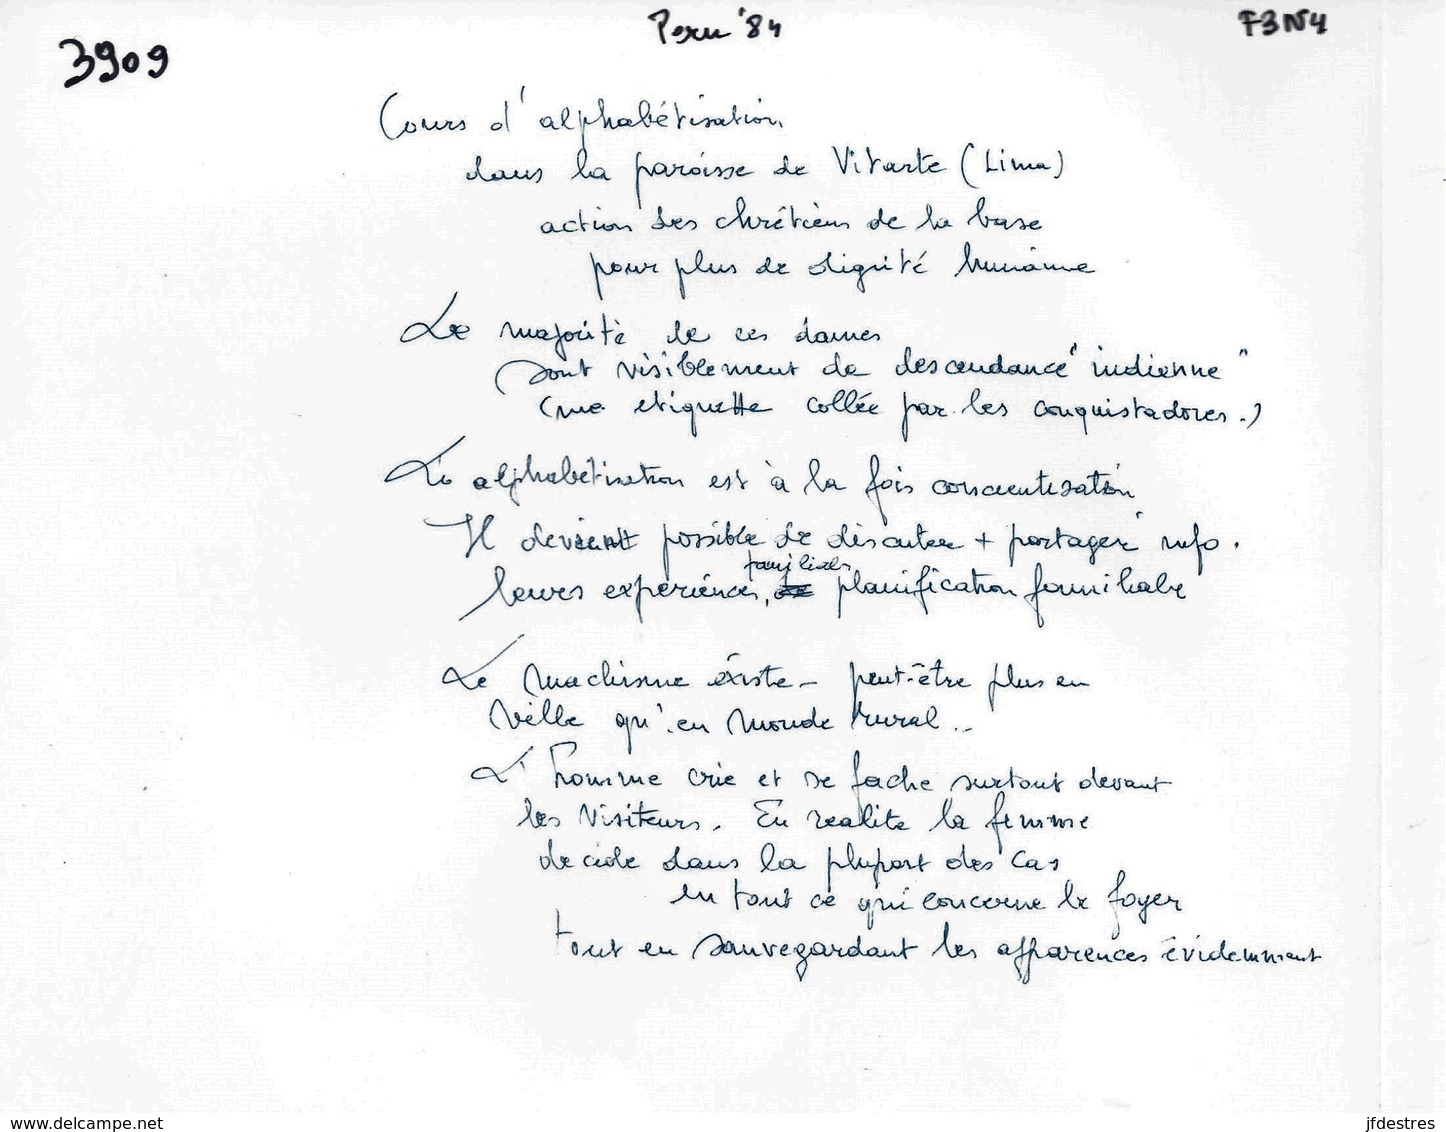 3909
Peru '84
F3N4
Cours d'alphabétisation
dans la paroisse de Vitarte (Lima)
action des chrétiens de la base
pour plus de dignité humaine
La majorité de ces dames
sont visiblement de descendance "indienne"
(une etiquette collée par les conquistadores.)
L'alphabétisation est à la fois conscientisation
Il devient possible de discuter + partager info.
familiales
leurs expériences, planification familiale
Le machisme éxiste - peut-être plus en
ville qu'en monde rural..
L'homme crie et se fache surtout devant
les visiteurs. En realite la femme
decide dans la plupart des cas
en tout ce qui concerne le foyer
tout en sauvegardant les apparences évidemment
www.delcampe.net
jfdestres